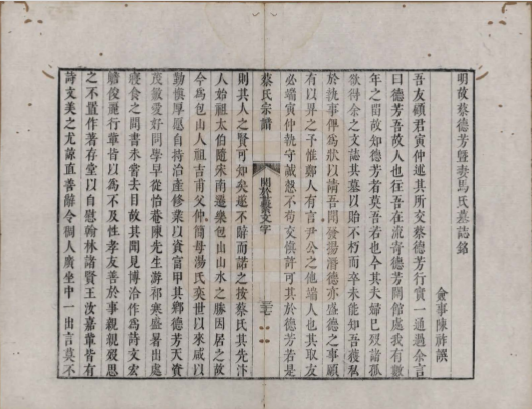 明故蔡德芳暨妻馬氏墓誌銘
僉事陳祚譔
吾友頋君寅仲述其所交蔡德芳行實一通過余言
曰德芳吾故人也徃吾在流青德芳開館處我有數
年之閒故知德芳者莫吾若也今其夫婦已歿諸孤
欲得余之文誌其墓以貽不朽而卒未能知吾獲私
於執事俾爲狀以請吾聞發揚潛德亦盛德之事頋
有以畀之予惟鄭人有言尹公之他端人也其取友
必端寅仲執守誠慤不苟交慎許可其於德芳若是
蔡氏宗譜
則其人之賢可知矣遂不辭而諾之按蔡氏其先汴
人始祖太伯隨宋南遷樂包山山水之勝因居之故
今爲包山人祖吉甫父仲簡母湯氏奕世以來咸以
勤慎厚愿自持治產修業以資富甲其鄉德芳天資
茂敏愛好問學早從怡菴陳先生游祁寒盛暑出處
寢食之間書未嘗去目故其聞見博洽作爲詩文宏
贍俊麗行輩皆以爲不及性孝友善於事親親歿思
之不置作著存堂以自慰翰林諸賢王汝嘉輩皆有
詩文美之尤諒直善辭令稠人廣坐中一出言莫不